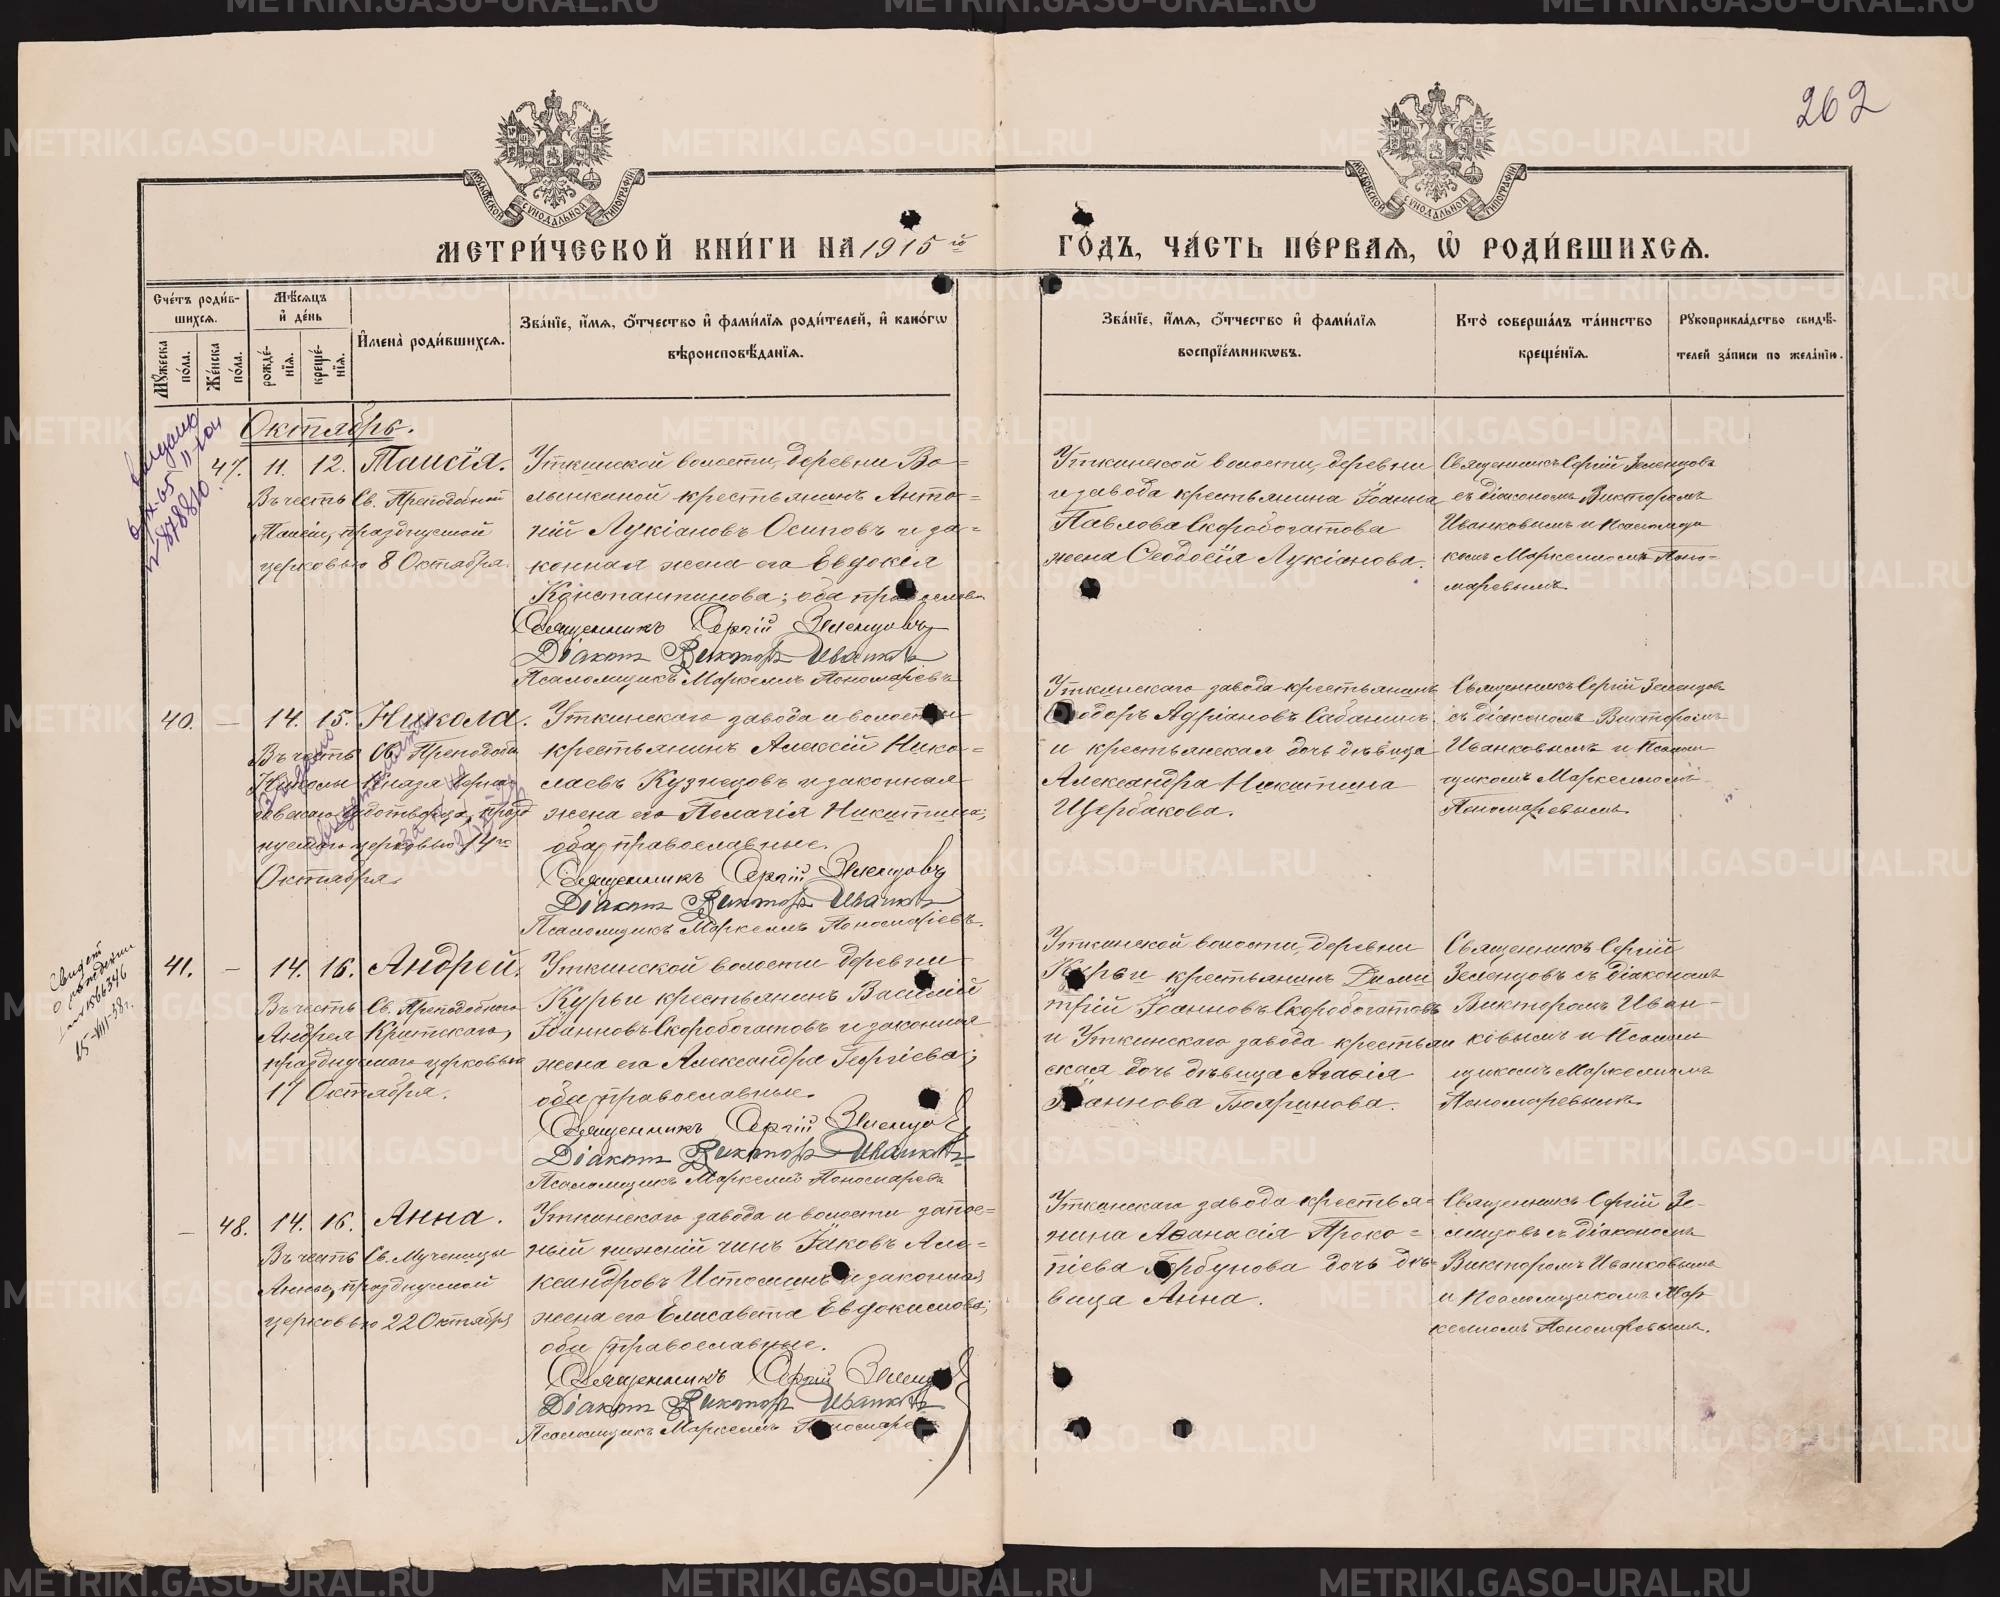 262
МОСКОВСКОЙ СѴНОДАЛЬНОЙ ТИПОГРАФІИ
МОСКОВСКОЙ СѴНОДАЛЬНОЙ ТИПОГРАФІИ
МЕТРИ́ЧЕСКОЙ КНИ́ГИ НА 1915 й ГО́ДЪ, ЧА́СТЬ ПЕ́РВАѦ, Ѡ҆ РОДИ́ВШИХСѦ.
Сче́тъ роди́в-
шихсѧ.
Мꙋ́жеска по́ла.
Же́нска по́ла.
Мѣ́сѧцъ и҆ де́нь
рожде́-
нїѧ.
креще́-
нїѧ.
И҆мена̀ роди́вшихсѧ.
Зва́нїе, и҆́мѧ, ѻ҆́тчество и҆ фами́лїѧ роди́телей, и҆ како́гѡ
вѣроисповѣ́данїѧ.
Зва́нїе, и҆́мѧ, ѻ҆́тчество и҆ фами́лїѧ
воспрїе́мникѡвъ.
Кто̀ соверша́лъ та́инство
креще́нїѧ.
Рꙋкоприкла́дство свидѣ́-
телей за́писи по жела́нїю.
Октябрь.
47. 11. 12. Таисія.
Въ честь Св. Преподобной
Таисіи, празднуемой
церковью 8 Октября.
Уткинской волости, деревни Во-
лынкиной крестьянинъ Анто-
ній Лукіановъ Осиповъ и за-
конная жена его Евдокія
Константинова; оба православн.
Священникъ Сергій Зеленцовъ
Діаконъ Викторъ Иванковъ
Псаломщикъ Маркеллъ Пономаревъ
Уткинской волости, деревни
и завода крестьянина Іоанна
Павлова Скоробогатова
жена Феодосія Лукіанова.
Священникъ Сергій Зеленцовъ
съ діакономъ Викторомъ
Иванковымъ и Псаломщи
комъ Маркелломъ Поно-
маревымъ
40. – 14. 15. Никола.
Въ честь Св. Преподобн
Николы Князя Черни-
говскаго чудотворца, празд
нуемаго церковью 14го
Октября.
Уткинскаго завода и волости
крестьянинъ Алексій Нико-
лаевъ Кузнецовъ и законная
жена его Пелагія Никитина;
оба православные.
Священникъ Сергій Зеленцовъ
Діаконъ Викторъ Иванковъ
Псаломщикъ Маркеллъ Пономаревъ.
Уткинскаго завода крестьянинъ
Феодоръ Адріановъ Сабанинъ
и крестьянская дочь дѣвица
Александра Никитина
Щербакова.
Священникъ Сергій Зеленцовъ
съ діакономъ Викторомъ
Иванковымъ и Псалом
щикомъ Маркелломъ
Пономаревымъ
41. – 14. 16. Андрей.
Въ честь Св. Преподобнаго
Андрея Критскаго,
празднуемаго церковью
17 Октября.
Уткинской волости деревни
Курьи крестьянинъ Василій
Іоанновъ Скоробогатовъ и законная
жена его Александра Георгіева;
оба православные.
Священникъ Сергій Зеленцов
Діаконъ Викторъ Иванковъ
Псаломщикъ Маркеллъ Пономаревъ
Уткинской волости, деревни
Курьи крестьянинъ Дими
трій Іоанновъ Скоробогатовъ
и Уткинскаго завода крестьян
ская дочь дѣвица Агафія
Іоаннова Бояринова.
Священникъ Сергій
Зеленцовъ съ діакономъ
Викторомъ Иван-
ковымъ и Псалом
щикомъ Маркелломъ
Пономаревымъ
– 48. 14. 16. Анна.
Въ честь Св. Мученицы
Анны, празднуемой
церковью 22 Октября
Уткинскаго завода и волости запас-
ный нижній чинъ Іаковъ Але-
ксандровъ Истоминъ и законная
жена его Елисавета Евдокимова;
оба православные.
Священникъ Сергій Зеленцов
Діаконъ Викторъ Иванковъ
Псаломщикъ Маркеллъ Пономаревъ
Уткинскаго завода крестья-
нина Аѳанасія Проко-
піева Горбунова дочь дѣ-
вица Анна.
Священникъ Сергій Зе-
ленцовъ съ діакономъ
Викторомъ Иванковымъ
и Псаломщикомъ Мар
келломъ Пономаревымъ.
Свидет
о рождении
1566346
15-VIII-58г.
METRIKI.GASO-URAL.RU